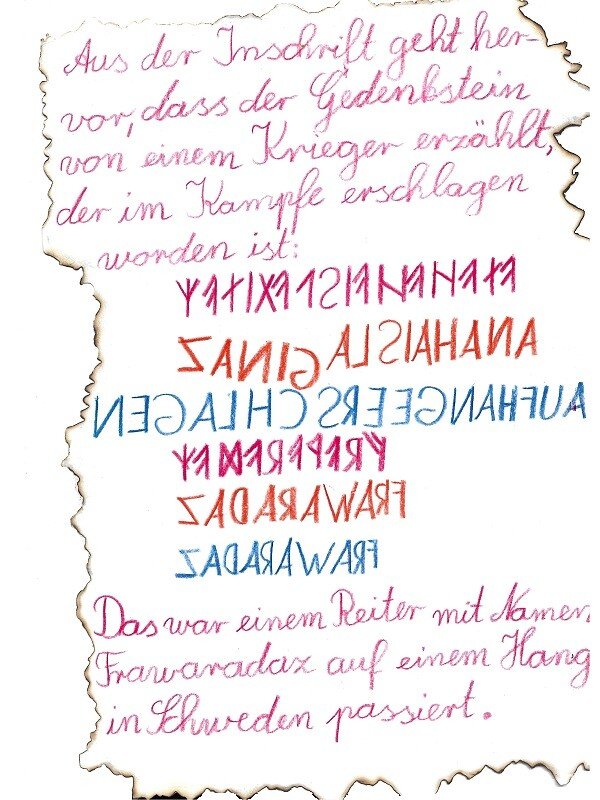 Aus der Inschrift geht her-
vor, dass der Gedenkstein
von einem Krieger erzählt,
der im Kampfe erschlagen
worden ist:
ᚨᚾᚨᚺᚨᛁᛊᛚᚨᚷᛁᚾᚨᛉ
ANAHAISLAGINAZ
AUFHANGEERSCHLAGEN
ᚠᚱᚨᚹᚨᚱᚨᛞᚨᛉ
FRAWARADAZ
FRAWARADAZ
Das war einem Reiter mit Namen
Frawaradaz auf einem Hang
in Schweden passiert.